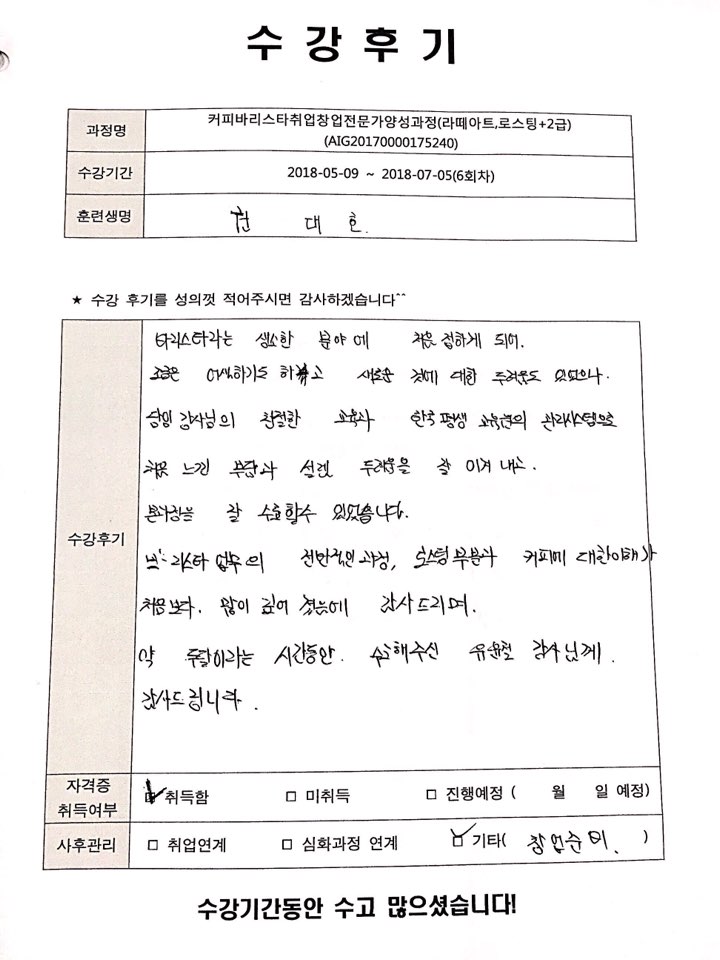 수 강 후 기
과정명
커피바리스타취업창업전문가양성과정(라떼아트,로스팅+2급)
(AIG20170000175240)
수강기간
2018-05-09 ~ 2018-07-05(6회차)
훈련생명
대 호
★ 수강 후기를 성의껏 적어주시면 감사하겠습니다^^
수강후기
바리스타라는 생소한 분야에 처음 접하게 되어.
조금은 어색하기도 하고 새로운 것에 대한 두려움도 있었으나.
담임 강사님의 친절한 교육과 한국평생교육원의 관리시스템으로
처음 느낀 부담과 설렘 두려움을 잘 이겨 내고.
본과정을 잘 수료할수 있었습니다.
바리스타 업무의 전반적인 과정, 로스팅부분과 커피에 대한이해가
처음보다. 많이 깊어 졌음에 감사드리며.
약 두달이라는 시간동안. 수고해주신 강사님께.
감사드립니다.
자격증
취득여부
☑ 취득함 □ 미취득 □ 진행예정 ( 월 일 예정)
사후관리
□ 취업연계 □ 심화과정 연계 ☑ 기타( 창업준비. )
수강기간동안 수고 많으셨습니다!